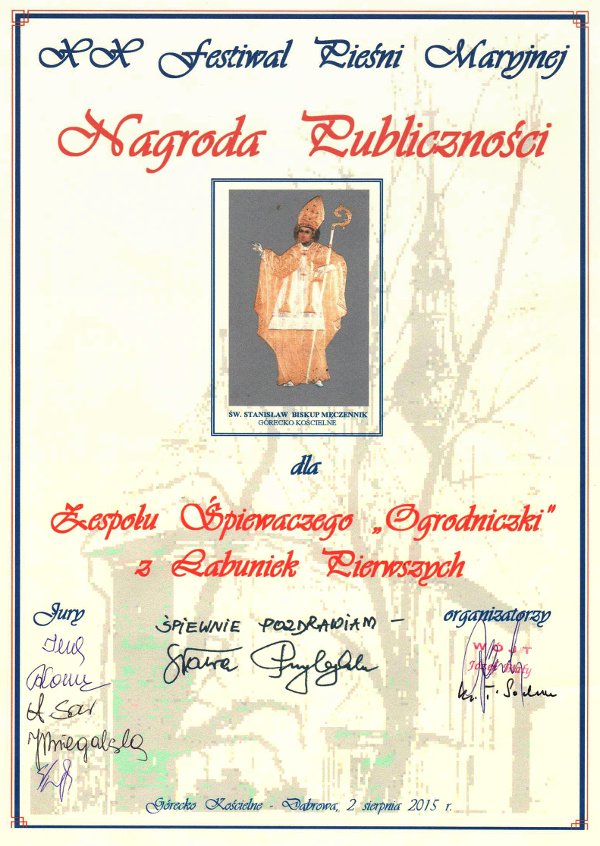 XX Festiwal Pieśni Maryjnej
Nagroda Publiczności
ŚW. STANISŁAW BISKUP MĘCZENNIK
GÓRECKO KOŚCIELNE
dla
Zespołu Śpiewaczego „Ogrodniczki”
z Łabuniek Pierwszych
Jury
ŚPIEWNIE POZDRAWIAM –
organizatorzy
WÓJT
Górecko Kościelne - Dąbrowa, 2 sierpnia 2015 r.